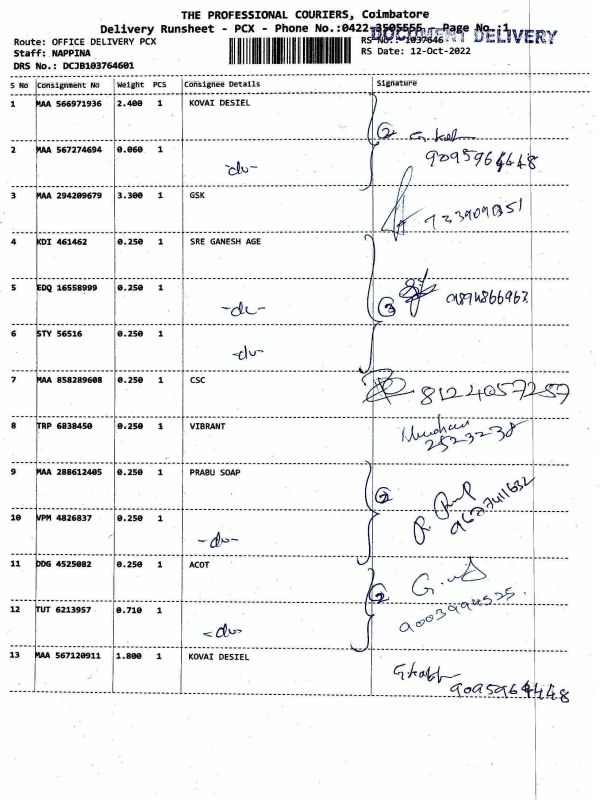 THE PROFESSIONAL COURIERS, Coimbatore
Delivery Runsheet - PCX - Phone No.:0422-3505555 - Page No.:1
DOCUMENT DELIVERY
Route: OFFICE DELIVERY PCX
RS No.: 1037646
Staff: NAPPINA
RS Date: 12-Oct-2022
DRS No.: DCJB103764601
S No Consignment No Weight PCS Consignee Details Signature
1 MAA 566971936 2.400 1 KOVAI DESIEL
2
2 MAA 567274694 0.060 1 -do- 9095964448
3 MAA 294209679 3.300 1 GSK
4 KDI 461462 0.250 1 SRE GANESH AGE
5 EDQ 16558999 0.250 1 -do- 3 9894866963
6 STY 56516 0.250 1 -do-
7 MAA 858289608 0.250 1 CSC 8124057257
8 TRP 6838450 0.250 1 VIBRANT 2523238
9 MAA 288612405 0.250 1 PRABU SOAP 2
10 VPM 4826837 0.250 1 -do-
11 DDG 4525082 0.250 1 ACOT 2
12 TUT 6213957 0.710 1 -do-
13 MAA 567120911 1.800 1 KOVAI DESIEL
9095964448